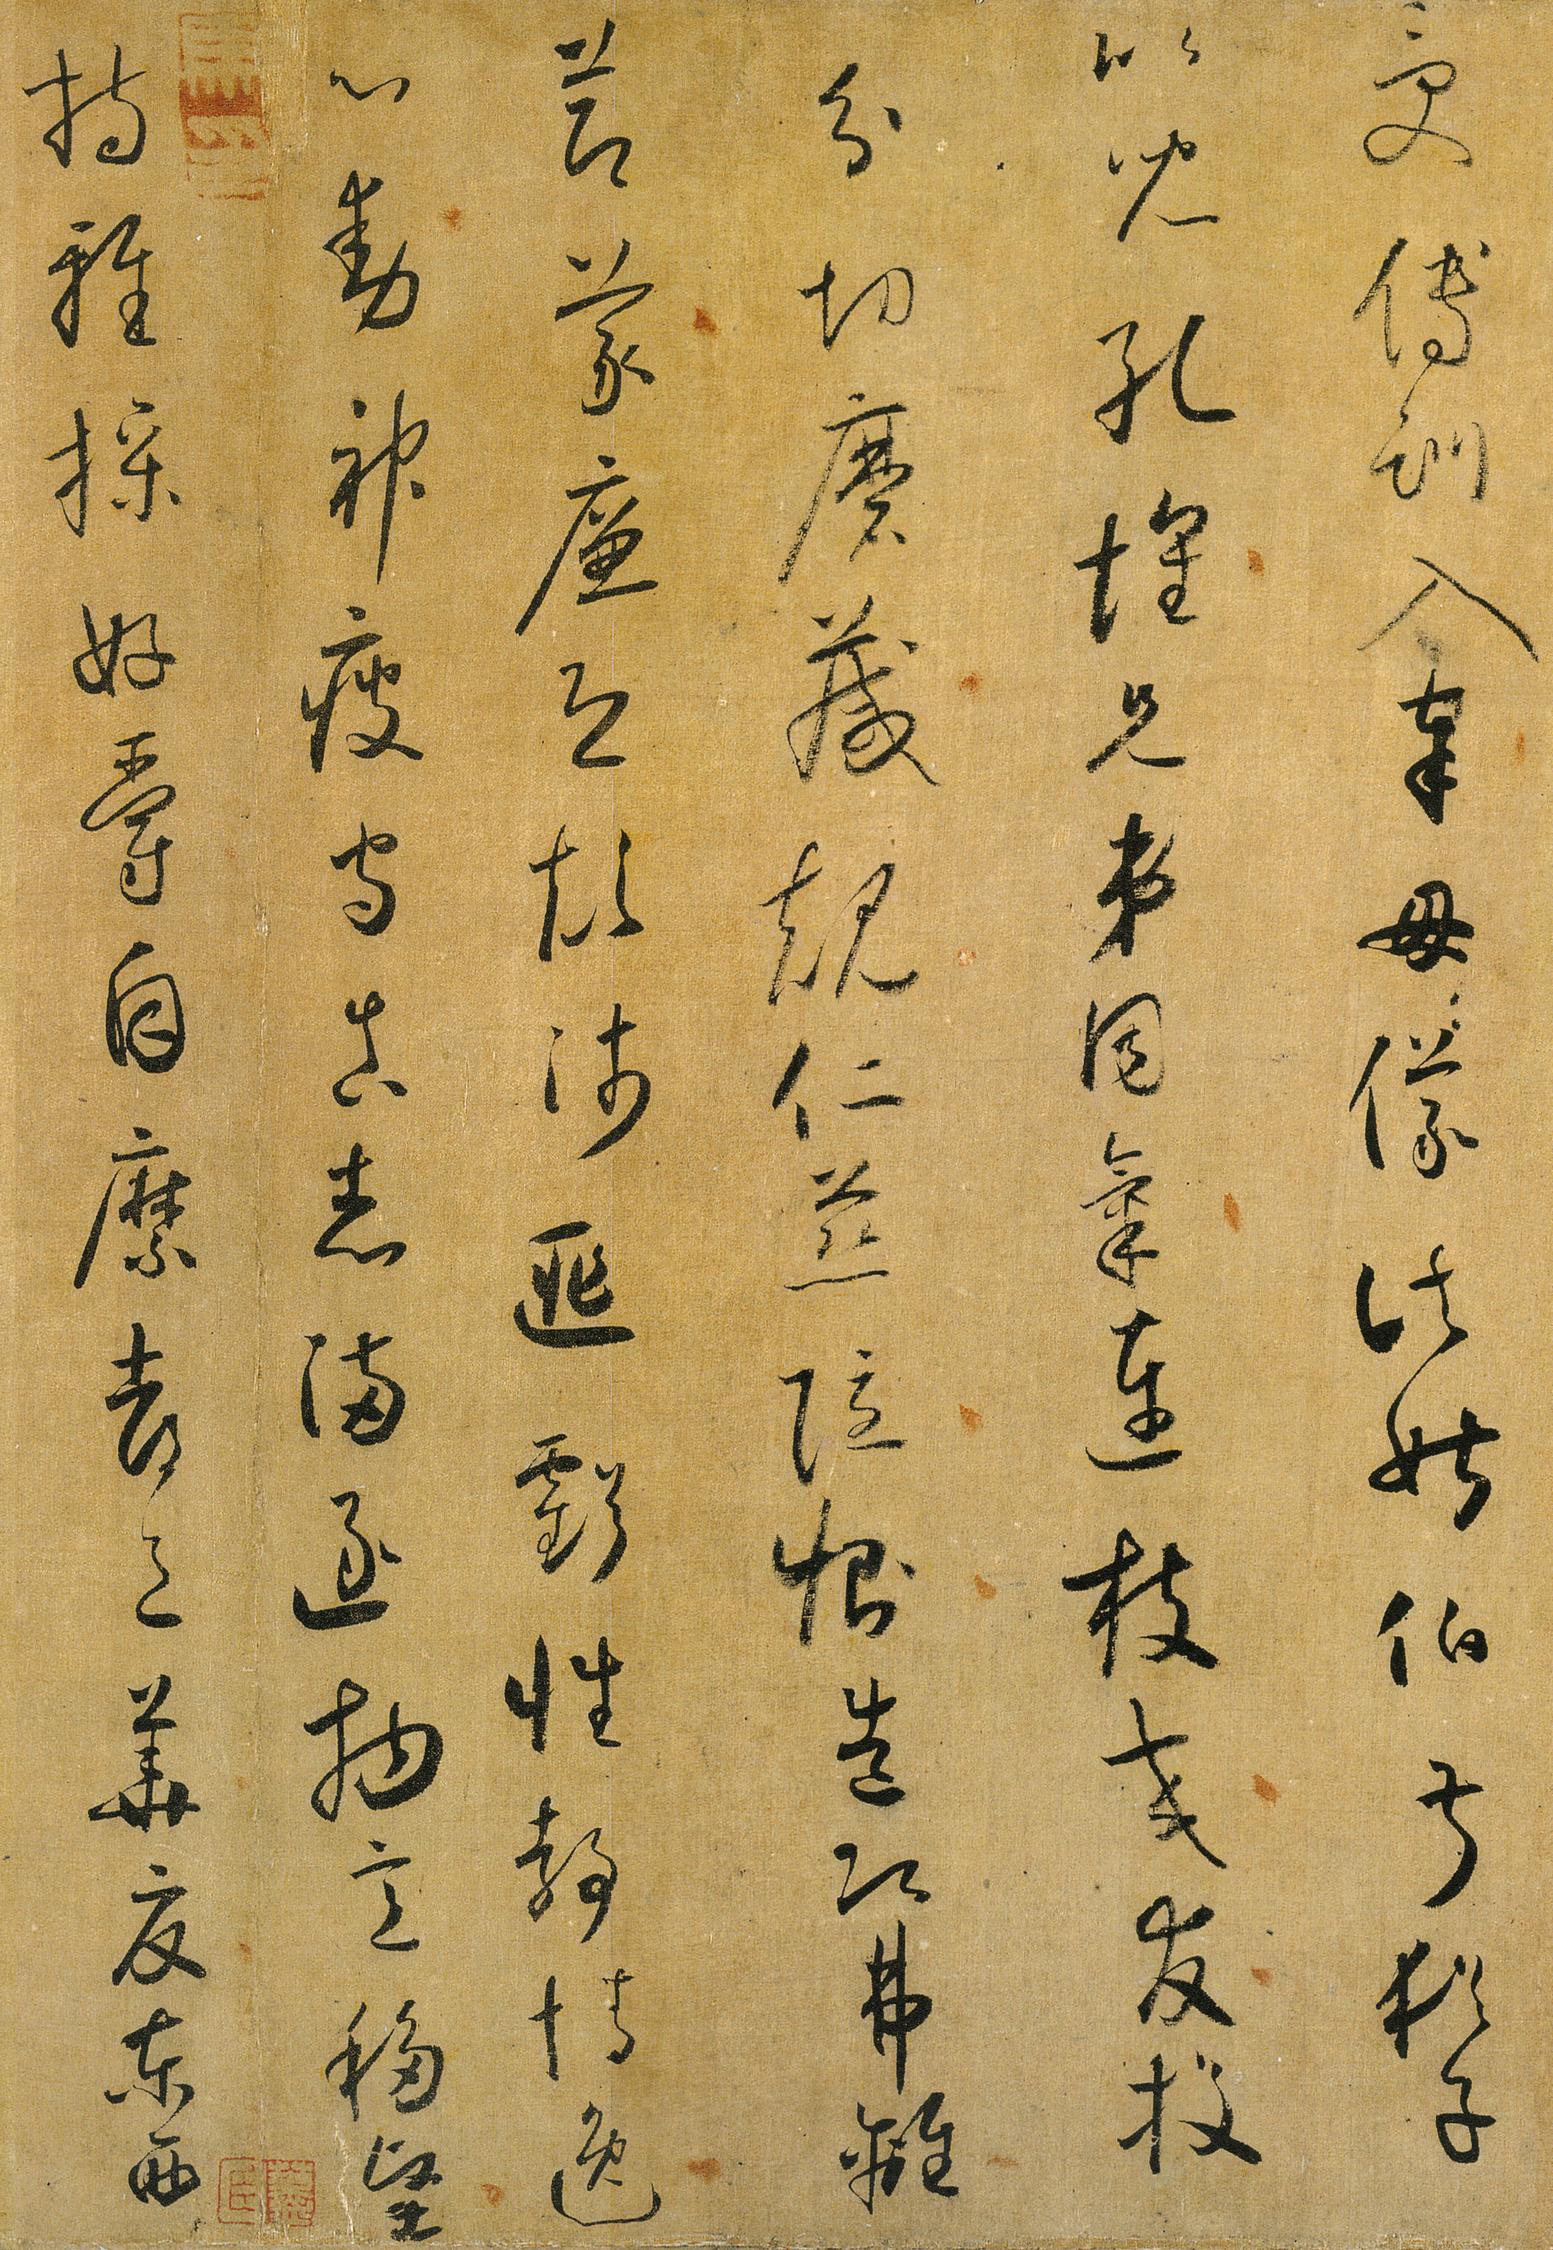 受傅訓入奉母儀諸姑伯叔猶子
比兒孔懷兄弟同氣連枝交友投
分切磨箴規仁慈隱惻造次弗離
節義廉退顛沛匪虧性靜情逸
心動神疲守真志滿逐物意移堅
持雅操好爵自縻都邑華夏東西